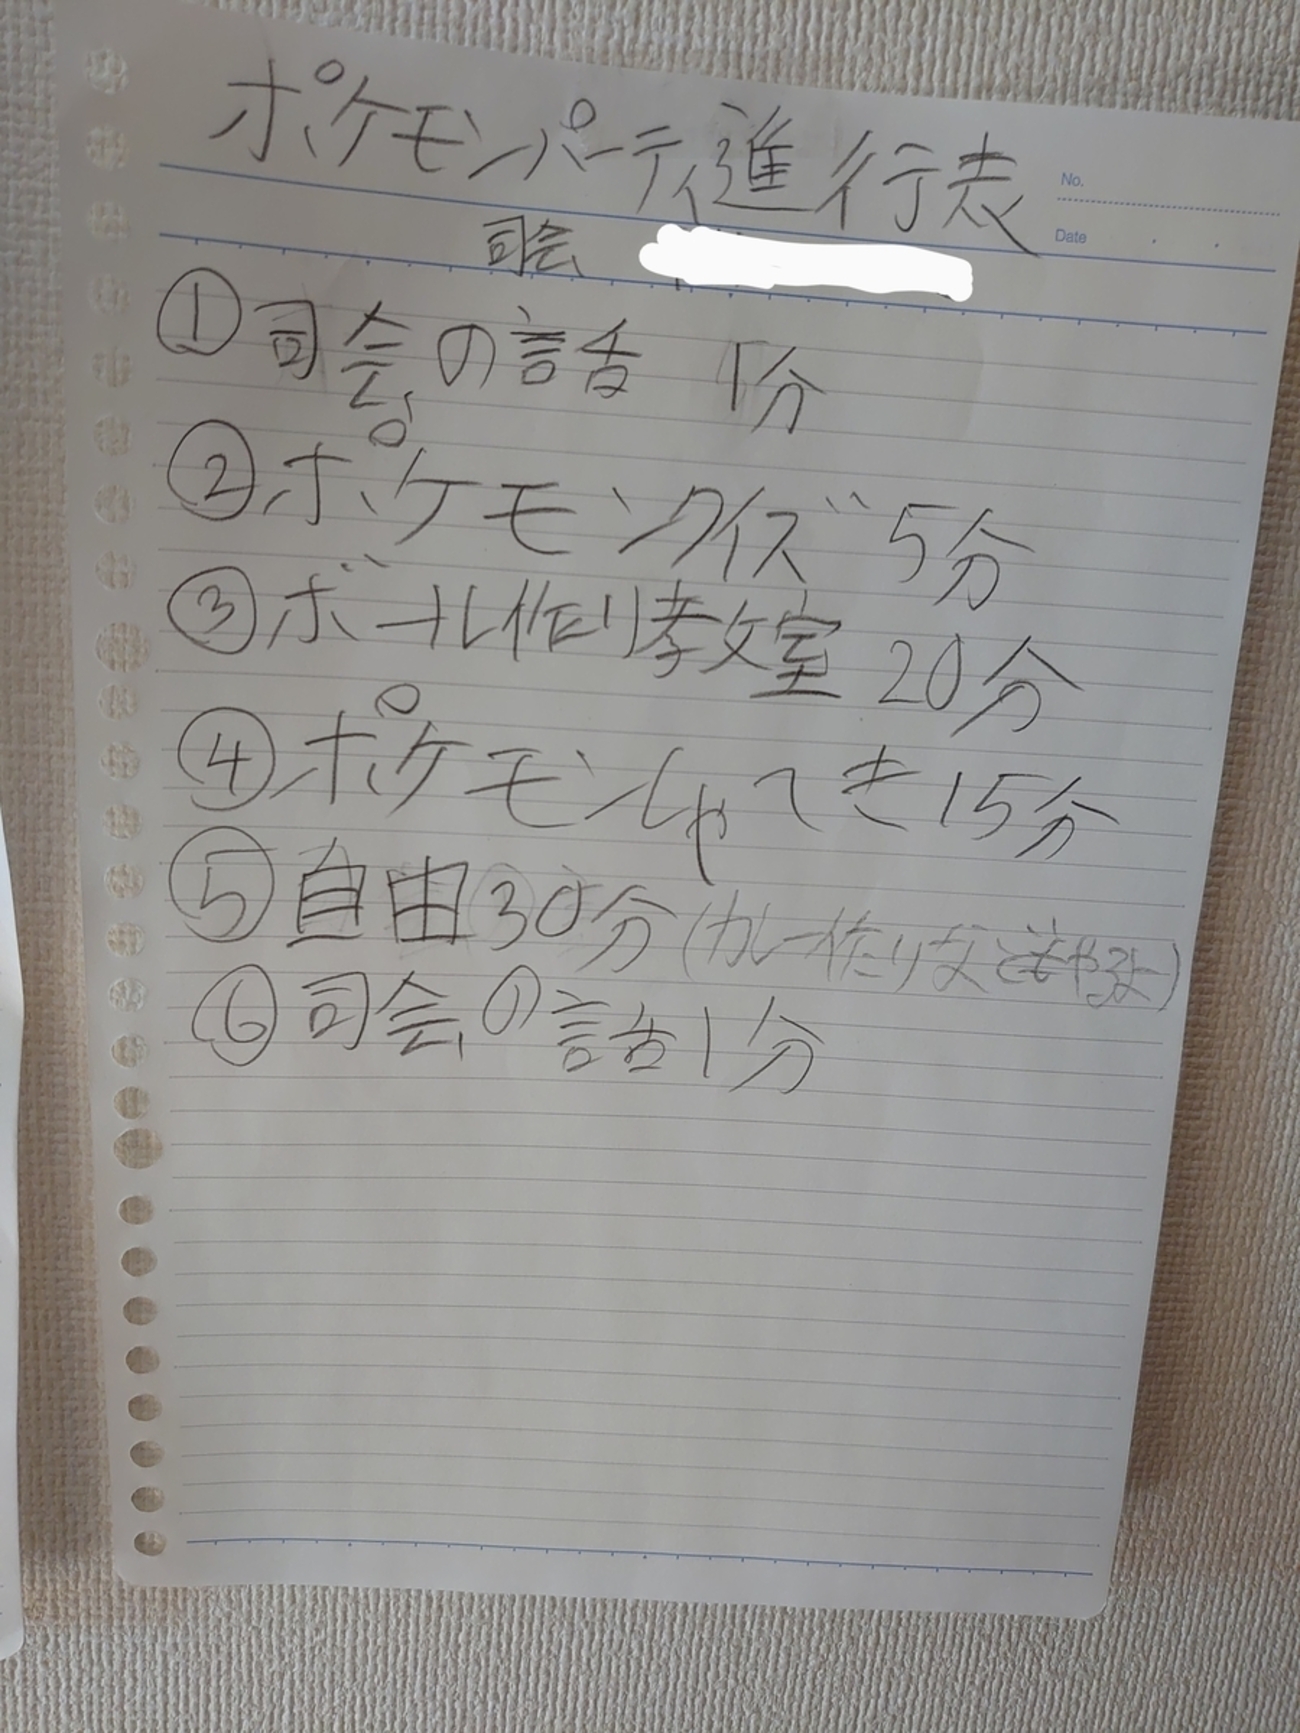 ポケモンパーティ進行表
No.
Date
司会
①司会の話 1分
②ポケモンクイズ 5分
③ボール作り教室 20分
④ポケモンしゃてき15分
⑤自由30分(カレー作りなどもやるよー)
⑥司会の話1分